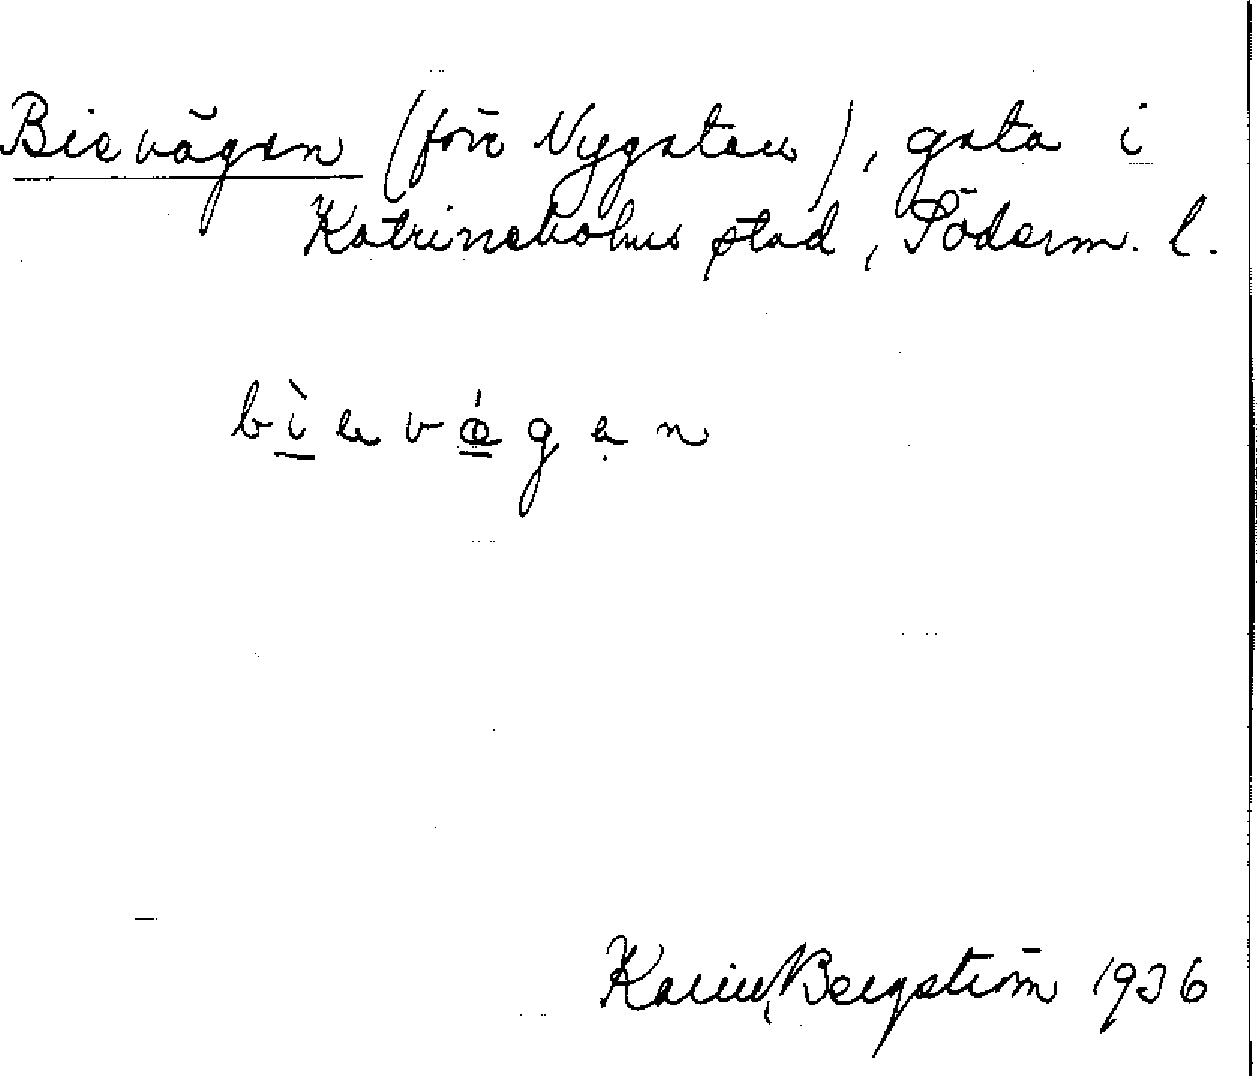 Bievägen (förr Nygatan), gata i
Katrineholms stad, Söderm. l.
bìevǽgen
Karin Bergström 1936